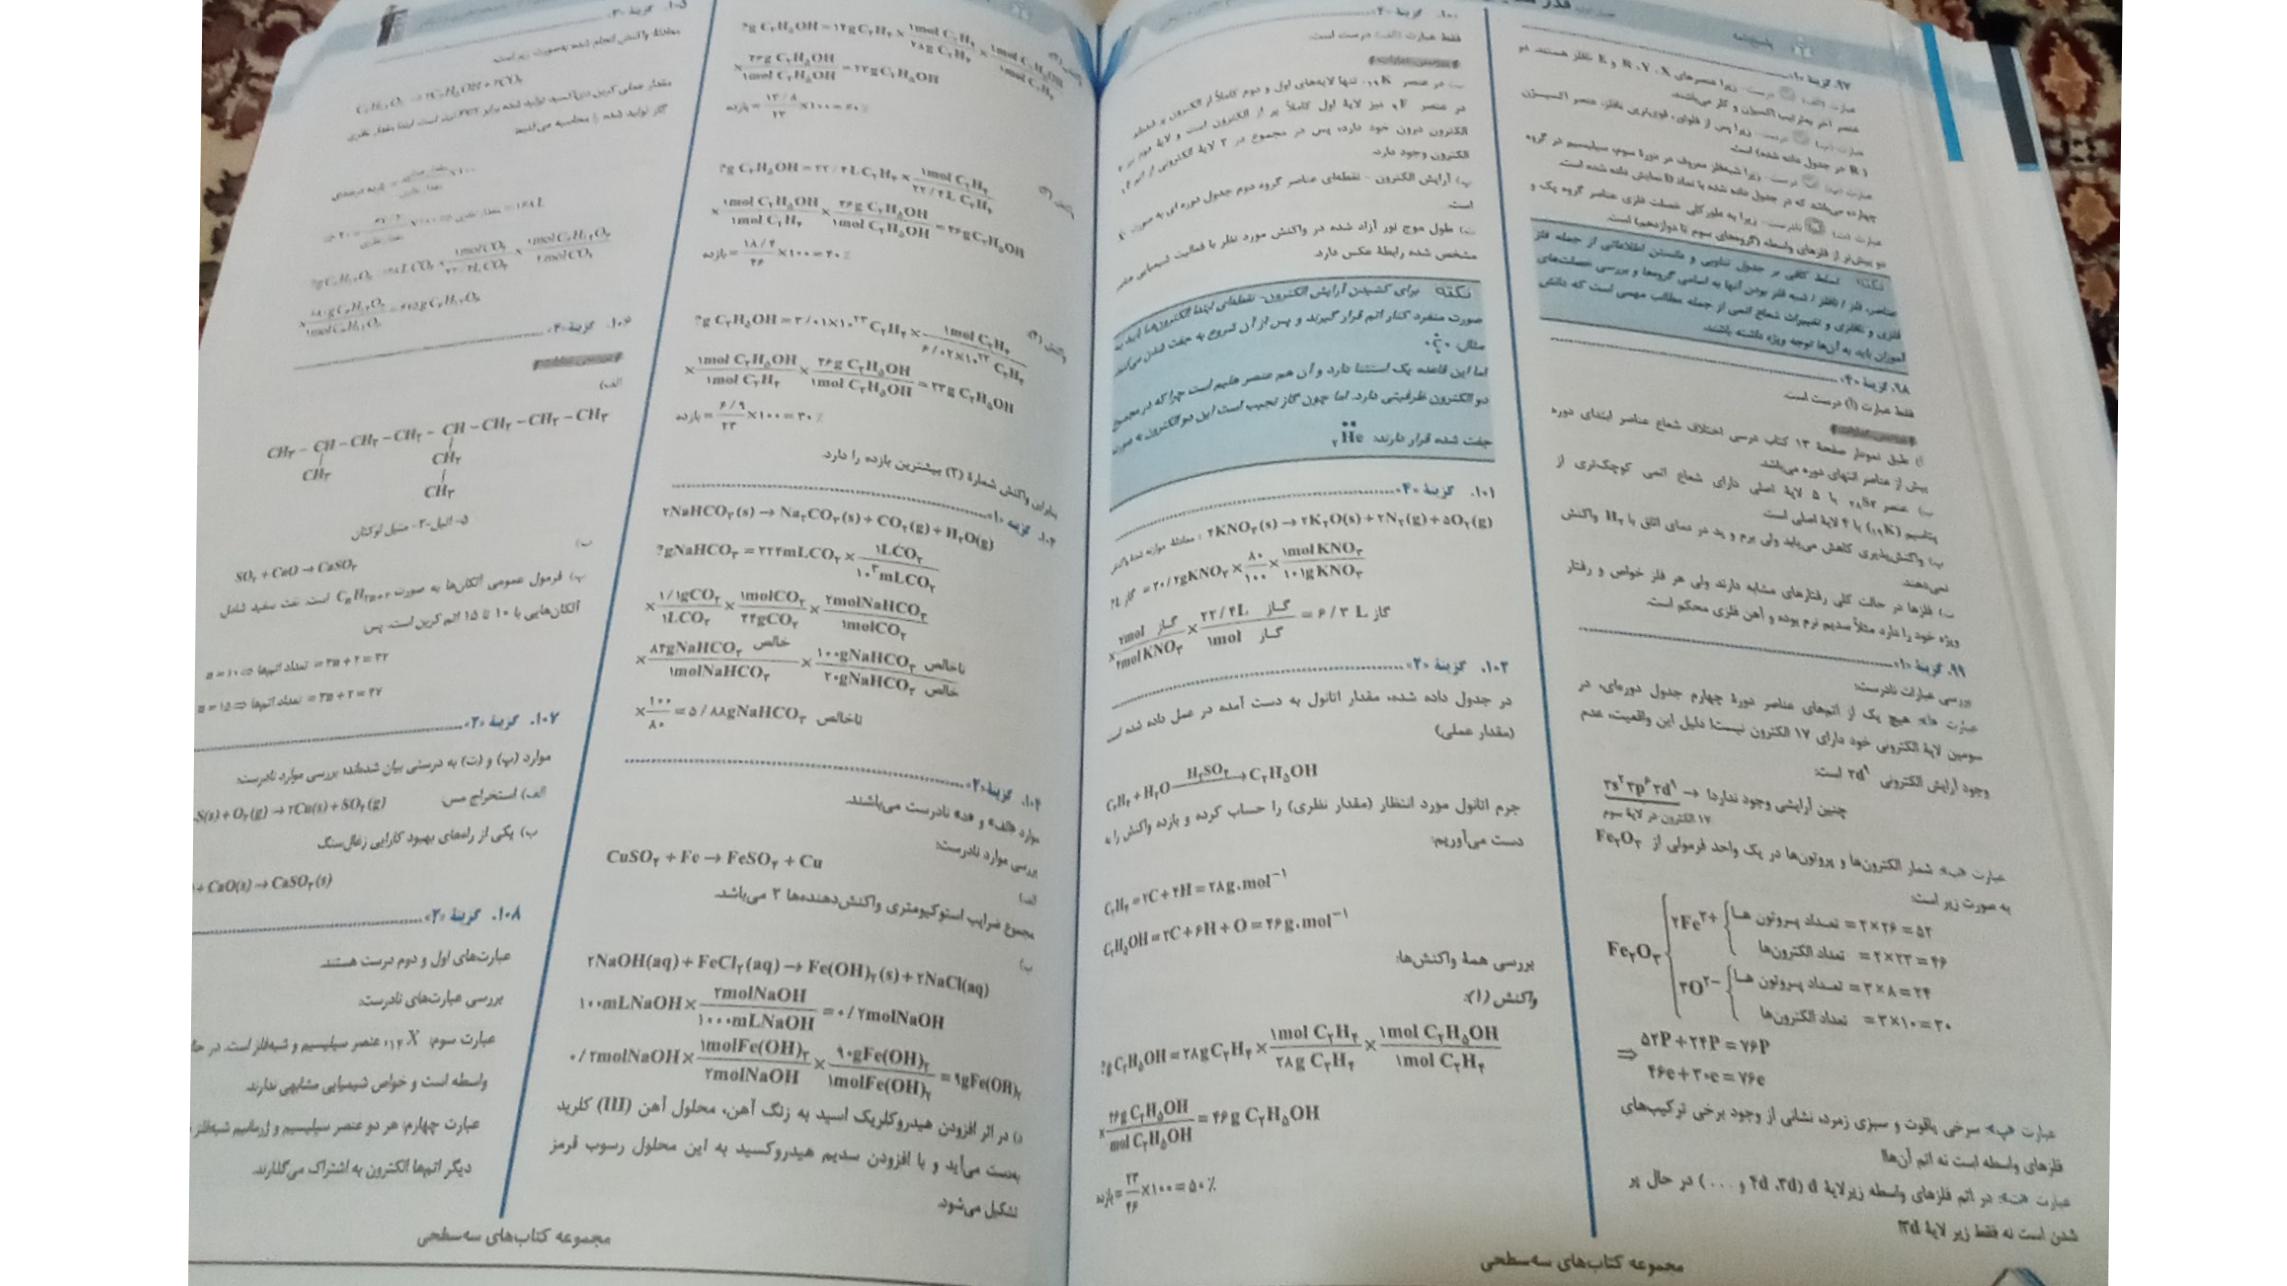 پاسخنامه
۹۷. گزینهٔ «۱»
عبارت (الف) درست - زیرا عنصرهای X، Y، R و E نافلز هستند. دو
عنصر آخر به‌ترتیب اکسیژن و کلر می‌باشند.
عبارت (ب) درست - زیرا پس از فلوئور، قوی‌ترین نافلز، عنصر اکسیژن
(R در جدول داده شده) است.
عبارت (پ) درست - زیرا شبه‌فلز معروف در دورهٔ سوم، سیلیسیم در گروه
چهارده می‌باشد که در جدول داده شده با نماد D نمایش داده شده است.
عبارت (ت) نادرست - زیرا به طور کلی خصلت فلزی عناصر گروه یک و
دو بیش‌تر از فلزهای واسطه (گروه‌های سوم تا دوازدهم) است.
نکته تسلط کافی بر جدول تناوبی و دانستن اطلاعاتی از جمله فلز
عناصر، فلز / نافلز / شبه فلز بودن آنها به اسامی گروه‌ها و بررسی خصلت‌های
فلزی و نافلزی و تغییرات شعاع اتمی از جمله مطالب مهمی است که دانش
آموزان باید به آن‌ها توجه ویژه داشته باشند.
۹۸. گزینهٔ «۴»
فقط عبارت (آ) درست است.
بررسی عبارات:
آ) طبق نمودار صفحهٔ ۱۳ کتاب درسی اختلاف شعاع عناصر ابتدای دوره
بیش از عناصر انتهای دوره می‌باشد.
ب) عنصر ۳۸Sr با ۵ لایهٔ اصلی دارای شعاع اتمی کوچک‌تری از
پتاسیم (۱۹K) با ۴ لایهٔ اصلی است.
پ) واکنش‌پذیری کاهش می‌یابد ولی برم و ید در دمای اتاق با H۲ واکنش
نمی‌دهند.
ت) فلزها در حالت کلی رفتارهای مشابه دارند ولی هر فلز خواص و رفتار
ویژه خود را دارد مثلاً سدیم نرم بوده و آهن فلزی محکم است.
۹۹. گزینهٔ «۱»
بررسی عبارات نادرست:
عبارت «آ»: هیچ یک از اتم‌های عناصر دورهٔ چهارم جدول دوره‌ای، در
سومین لایهٔ الکترونی خود دارای ۱۷ الکترون نیست! دلیل این واقعیت، عدم
وجود آرایش الکترونی ۳d۹ است:
چنین آرایشی وجود ندارد! → ۳s۲۳p۶۳d۹
۱۷ الکترون در لایهٔ سوم
عبارت «ب»: شمار الکترون‌ها و پروتون‌ها در یک واحد فرمولی از Fe۲O۳
به صورت زیر است:
۲Fe۳+ تعداد پروتون ها = ۲×۲۶ = ۵۲
تعداد الکترون‌ها = ۲×۲۳ = ۴۶
Fe۲O۳
۳O۲− تعداد پروتون ها = ۳×۸ = ۲۴
تعداد الکترون‌ها = ۳×۱۰ = ۳۰
⇒ ۵۲P+۲۴P = ۷۶P
۴۶e+۳۰e = ۷۶e
عبارت «پ»: سرخی یاقوت و سبزی زمرد، نشانی از وجود برخی ترکیب‌های
فلزهای واسطه است نه اتم آن‌ها!
عبارت «ت»: در اتم فلزهای واسطه زیرلایهٔ d (۳d، ۴d و ...) در حال پر
شدن است نه فقط زیر لایهٔ ۳d!
مجموعه کتاب‌های سه‌سطحی
۱۰۰. گزینهٔ «۴»
فقط عبارت (الف) درست است.
ب) در عنصر ۱۹K، تنها لایه‌های اول و دوم کاملاً از الکترون پر
در عنصر ۹F نیز لایهٔ اول کاملاً پر از الکترون است و لایهٔ دوم نیز ۷
الکترون درون خود دارد، پس در مجموع در ۲ لایهٔ الکترونی از اتم ۹F،
الکترون وجود دارد.
پ) آرایش الکترون - نقطه‌ای عناصر گروه دوم جدول دوره ای به صورت
است.
ت) طول موج نور آزاد شده در واکنش مورد نظر با فعالیت شیمیایی
مشخص شده رابطهٔ عکس دارد.
نکته برای کشیدن آرایش الکترون- نقطه‌ای ابتدا الکترون‌ها باید به
صورت منفرد کنار اتم قرار گیرند و پس از آن شروع به جفت شدن می‌کنند
مثال: C
اما این قاعده یک استثنا دارد و آن هم عنصر هلیم است چرا که در مجموع
دو الکترون ظرفیتی دارد. اما چون گاز نجیب است این دو الکترون به صورت
جفت شده قرار دارند: ۲He
۱۰۱. گزینهٔ «۴»
معادلهٔ موازنه شدهٔ واکنش : ۴KNO۳(s) → ۲K۲O(s)+۲N۲(g)+۵O۲(g)
?L گاز = ۲۰/۲gKNO۳ × ۸۰/۱۰۰ × ۱molKNO۳/۱۰۱gKNO۳
× ۷mol گاز/۴molKNO۳ × ۲۲/۴L گاز/۱mol گاز = ۶/۳ L گاز
۱۰۲. گزینهٔ «۲»
در جدول داده شده، مقدار اتانول به دست آمده در عمل داده شده است
(مقدار عملی)
C۲H۴+H۲O —H۲SO۴→ C۲H۵OH
جرم اتانول مورد انتظار (مقدار نظری) را حساب کرده و بازده واکنش را به
دست می‌آوریم:
C۲H۴ = ۲C+۴H = ۲۸g.mol−۱
C۲H۵OH = ۲C+۶H+O = ۴۶g.mol−۱
بررسی همهٔ واکنش‌ها:
واکنش (۱):
?g C۲H۵OH = ۲۸g C۲H۴ × ۱mol C۲H۴/۲۸g C۲H۴ × ۱mol C۲H۵OH/۱mol C۲H۴
× ۴۶g C۲H۵OH/mol C۲H۵OH = ۴۶g C۲H۵OH
بازده = ۲۳/۴۶ ×۱۰۰ = ۵۰٪
مجموعه کتاب‌های سه‌سطحی
واکنش (۲)
?g C۲H۵OH = ۱۴g C۲H۴ × ۱mol C۲H۴/۲۸g C۲H۴ × ۱mol C۲H۵OH/۱mol C۲H۴
× ۴۶g C۲H۵OH/۱mol C۲H۵OH = ۲۳g C۲H۵OH
بازده = ۱۳/۸/۲۳ ×۱۰۰ = ۶۰٪
?g C۲H۵OH = ۲۲/۴L C۲H۴ × ۱mol C۲H۴/۲۲/۴L C۲H۴
× ۱mol C۲H۵OH/۱mol C۲H۴ × ۴۶g C۲H۵OH/۱mol C۲H۵OH = ۴۶g C۲H۵OH
بازده = ۱۸/۴/۴۶ ×۱۰۰ = ۴۰٪
واکنش (۴)
?g C۲H۵OH = ۳/۰۱×۱۰۲۳ C۲H۴ × ۱mol C۲H۴/۶/۰۲×۱۰۲۳ C۲H۴
× ۱mol C۲H۵OH/۱mol C۲H۴ × ۴۶g C۲H۵OH/۱mol C۲H۵OH = ۲۳g C۲H۵OH
بازده = ۶/۹/۲۳ ×۱۰۰ = ۳۰٪
بنابراین واکنش شمارهٔ (۲) بیشترین بازده را دارد.
۱۰۳. گزینهٔ «۱»
۲NaHCO۳(s) → Na۲CO۳(s)+CO۲(g)+H۲O(g)
?gNaHCO۳ = ۲۲۴mLCO۲ × ۱LCO۲/۱۰۳mLCO۲
× ۱/۱gCO۲/۱LCO۲ × ۱molCO۲/۴۴gCO۲ × ۲molNaHCO۳/۱molCO۲
× ۸۴gNaHCO۳ خالص/۱molNaHCO۳ × ۱۰۰gNaHCO۳ ناخالص/۲۰gNaHCO۳ خالص
× ۱۰۰/۸۰ = ۵/۸۸gNaHCO۳ ناخالص
۱۰۴. گزینهٔ «۲»
موارد «الف» و «د» نادرست می‌باشند.
بررسی موارد نادرست:
الف)
CuSO۴ + Fe → FeSO۴ + Cu
مجموع ضرایب استوکیومتری واکنش‌دهنده‌ها ۲ می‌باشد.
ب)
۲NaOH(aq)+FeCl۲(aq) → Fe(OH)۲(s)+۲NaCl(aq)
۱۰۰mLNaOH × ۲molNaOH/۱۰۰۰mLNaOH = ۰/۲molNaOH
۰/۲molNaOH × ۱molFe(OH)۲/۲molNaOH × ۹۰gFe(OH)۲/۱molFe(OH)۲ = ۹gFe(OH)۲
د) در اثر افزودن هیدروکلریک اسید به زنگ آهن، محلول آهن (III) کلرید
به‌دست می‌آید و با افزودن سدیم هیدروکسید به این محلول رسوب قرمز
تشکیل می‌شود.
۱۰۵. گزینهٔ «۳»
معادلهٔ واکنش انجام شده به‌صورت زیر است.
C۶H۱۲O۶ → ۲C۲H۵OH+۲CO۲
گاز تولید شده را محاسبه می‌کنیم
۱۰۶. گزینهٔ «۴»
الف)
CH۳ − CH − CH۲ − CH۲ − CH − CH۲ − CH۲ − CH۳
CH۳ CH۲
CH۳
۵- اتیل-۲- متیل اوکتان
ب)
SO۲ + CaO → CaSO۳
پ) فرمول عمومی آلکان‌ها به صورت CnH۲n+۲ است. نفت سفید شامل
آلکان‌هایی با ۱۰ تا ۱۵ اتم کربن است. پس
n = ۱۰ ⇒ تعداد اتم‌ها = ۳n+۲ = ۳۲
n = ۱۵ ⇒ تعداد اتم‌ها = ۳n+۲ = ۴۷
۱۰۷. گزینهٔ «۲»
موارد (پ) و (ت) به درستی بیان شده‌اند؛ بررسی موارد نادرست:
الف) استخراج مس:
S(s)+O۲(g) → ۲Cu(s)+SO۲(g)
ب) یکی از راه‌های بهبود کارایی زغال‌سنگ
+CaO(s) → CaSO۳(s)
۱۰۸. گزینهٔ «۲»
عبارت‌های اول و دوم درست هستند.
بررسی عبارت‌های نادرست:
عبارت سوم: ۱۴X، عنصر سیلیسیم و شبه‌فلز است. در
واسطه است و خواص شیمیایی مشابهی ندارند.
عبارت چهارم: هر دو عنصر سیلیسیم و ژرمانیم شبه‌فلز
دیگر اتم‌ها الکترون به اشتراک می‌گذارند.
مجموعه کتاب‌های سه‌سطحی